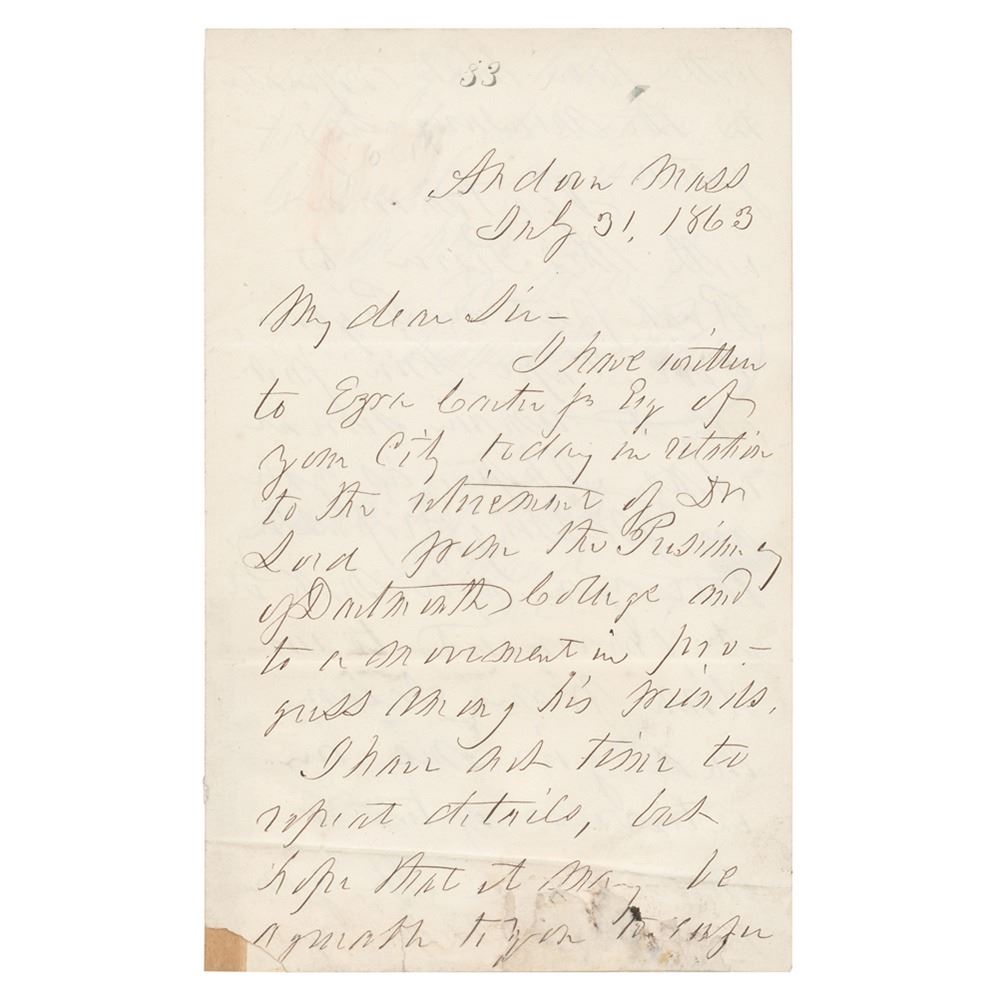 33
Andover Mass
July 31, 1863
My dear Sir –
I have written
to Ezra Carter Jr Esq of
your City today in relation
to the retirement of Dr
Lord from the Presidency
of Dartmouth College and
to a movement in pro-
gress among his friends.
I have not time to
repeat details, but
hope that it may be
agreeable to you to confer